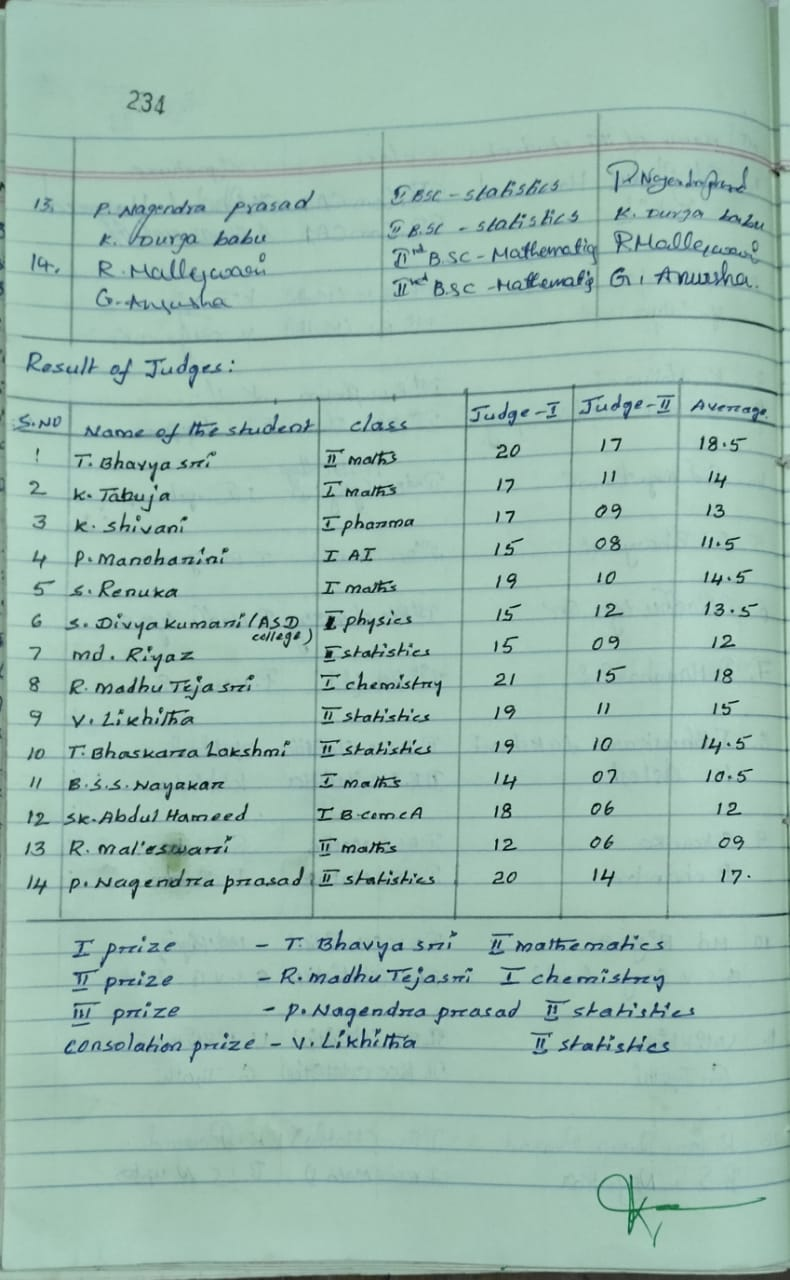 234
13. P. Nagendra prasad II BSC - statistics P. Nagendra prasad
K. Durga babu II B.SC - statistics K. Durga babu
14. R. Malleswari IInd B.SC - Mathematics R Malleswari
G. Anusha IInd B.SC - Mathematics G. Anusha.
Result of Judges:
S.NO Name of the student class Judge-I Judge-II Average
1 T. Bhavya sri II maths 20 17 18.5
2 K. Tabuja I maths 17 11 14
3 K. Shivani I pharma 17 09 13
4 P. Manoharini I AI 15 08 11.5
5 S. Renuka I maths 19 10 14.5
6 S. Divya kumari (ASD college) I physics 15 12 13.5
7 md. Riyaz II statistics 15 09 12
8 R. madhu Teja sri I chemistry 21 15 18
9 V. Likhitha II statistics 19 11 15
10 T. Bhaskara Lakshmi II statistics 19 10 14.5
11 B.S.S. Nayakar I maths 14 07 10.5
12 SK. Abdul Hameed I B.com CA 18 06 12
13 R. maleswari II maths 12 06 09
14 P. Nagendra prasad II statistics 20 14 17.
I prize - T. Bhavya sri II mathematics
II prize - R. madhu Tejasri I chemistry
III prize - P. Nagendra prasad II statistics
consolation prize - V. Likhitha II statistics